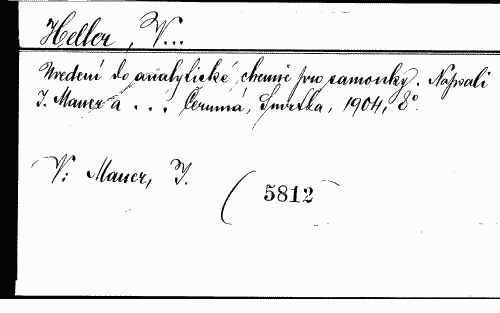 Heller, V...
Uvedení do analytické chemie pro samouky. Napsali
J. Mauer a ... Čermná, Smrčka, 1904, 8°
V: Mauer, J.
5812